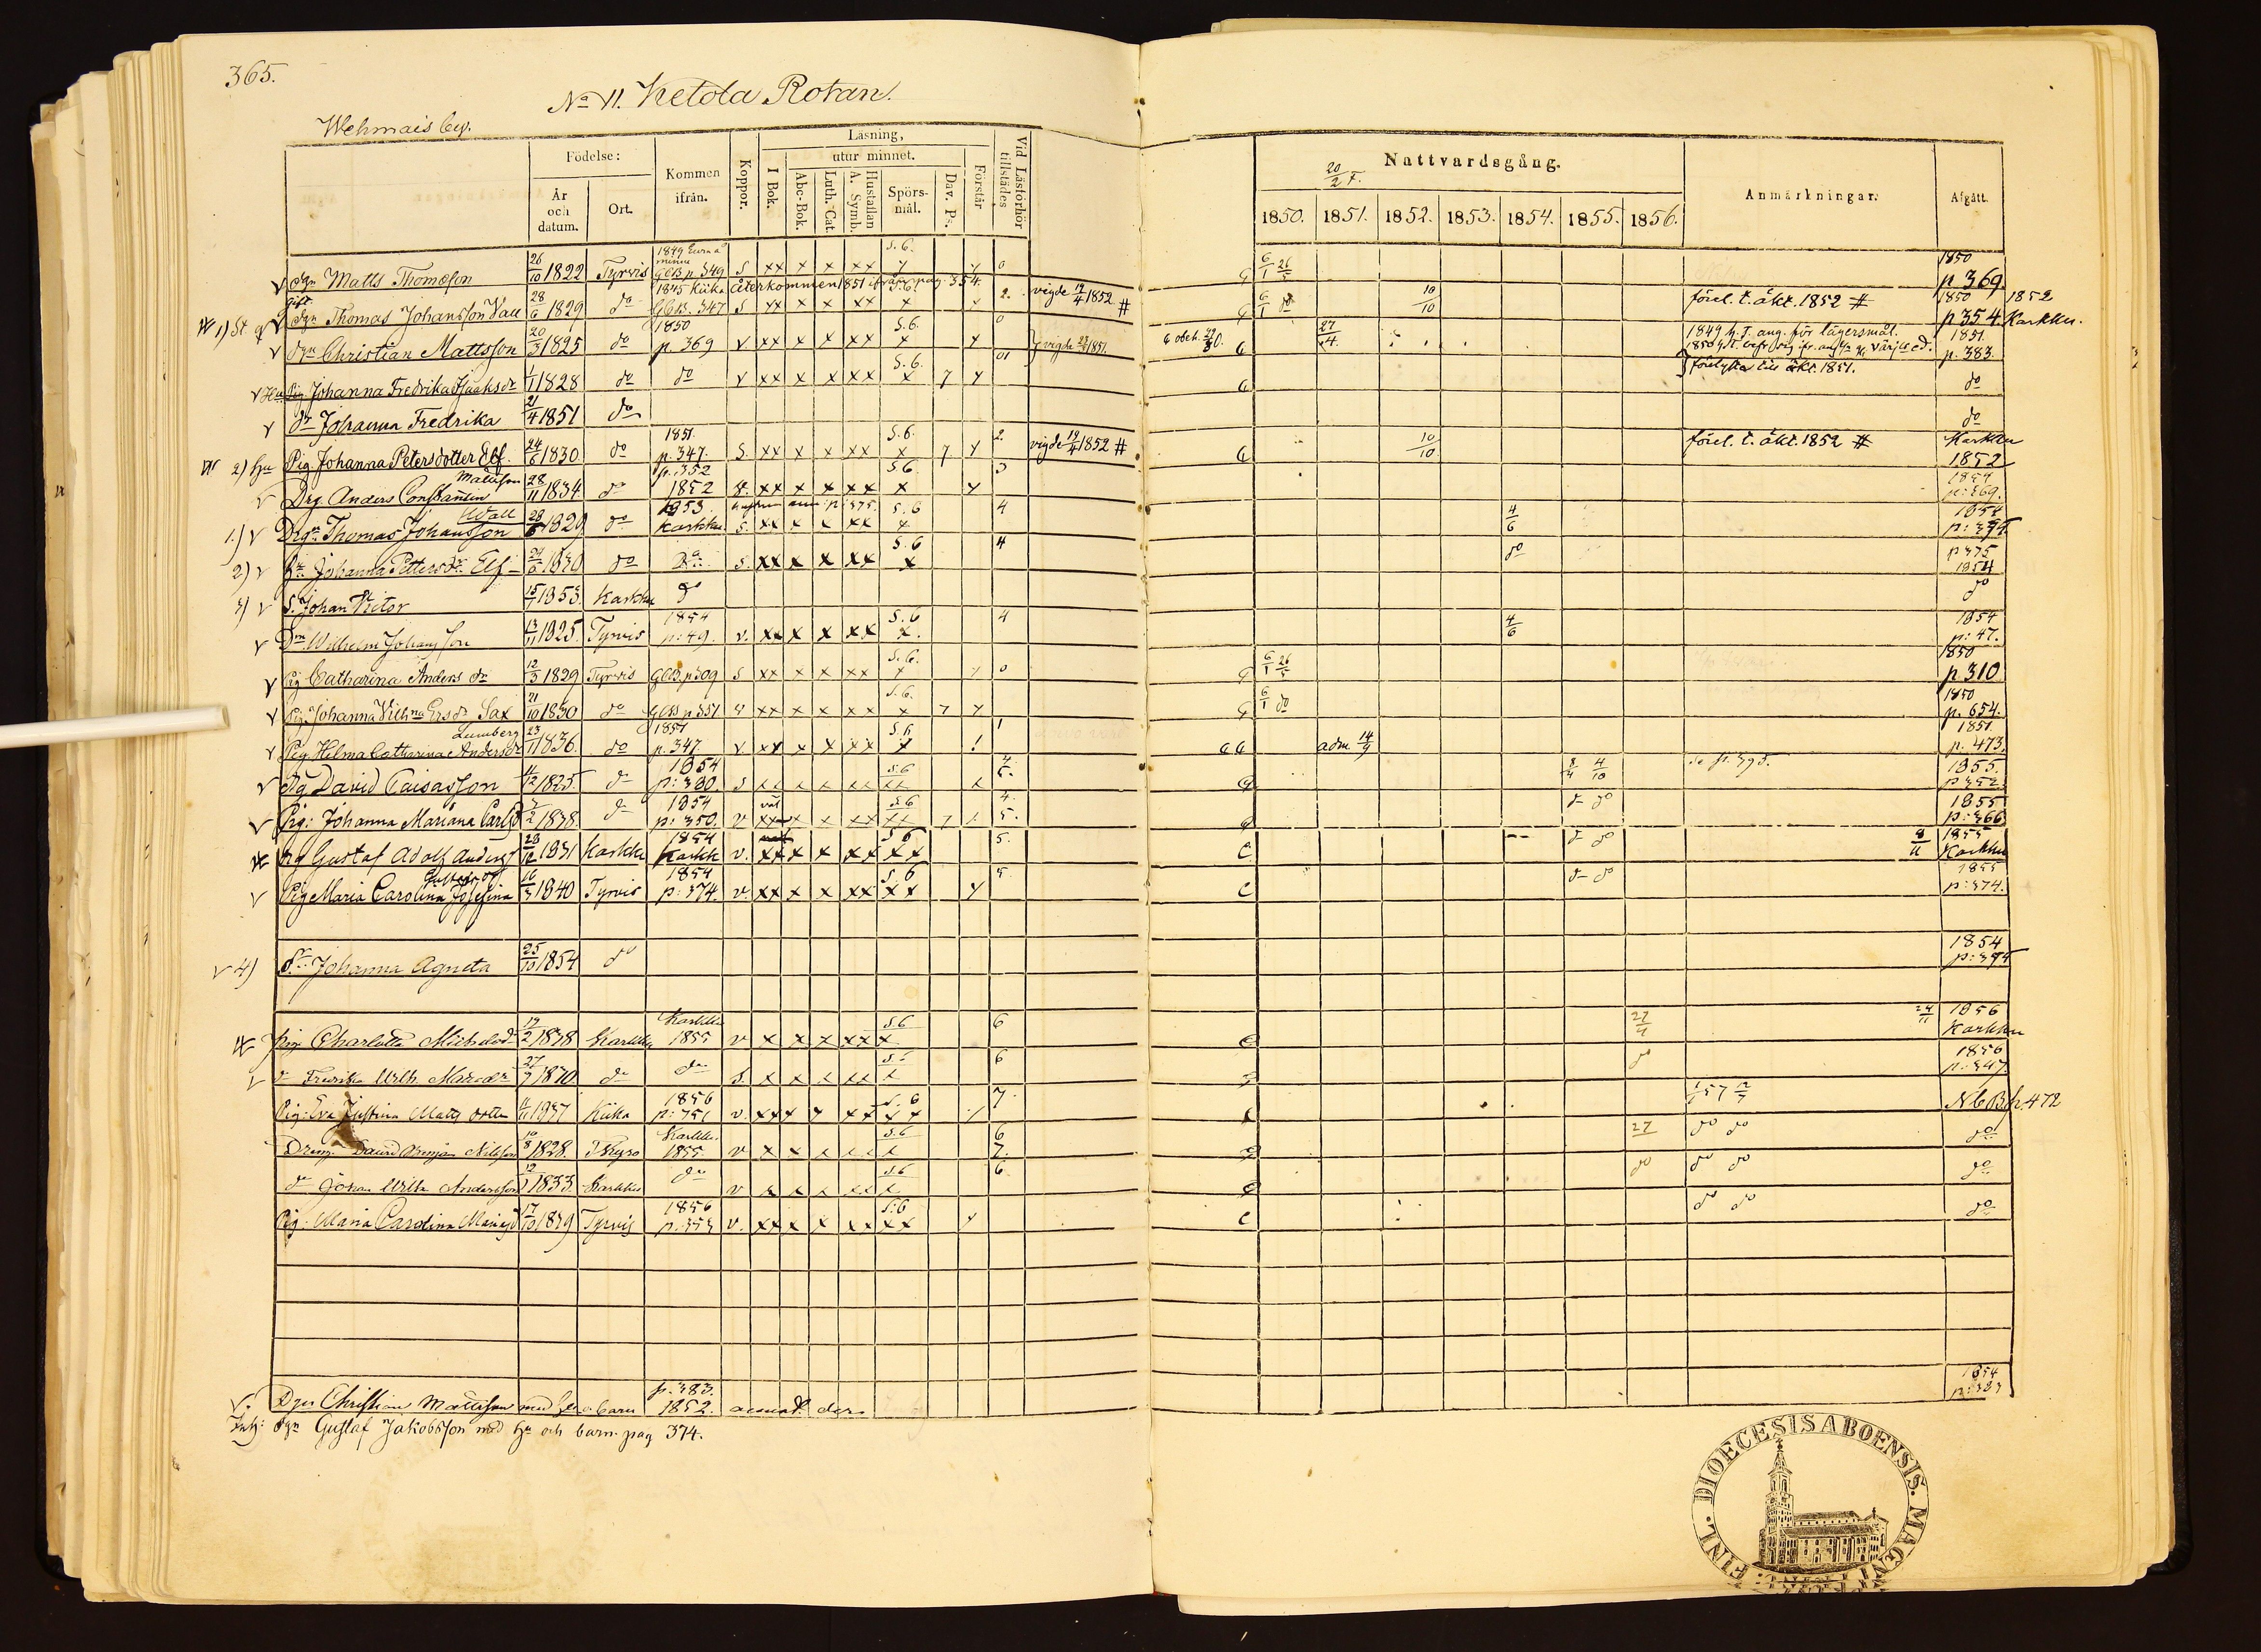 365.
No 11. Ketola Rotan.
Wehmais by.
Födelse: Kommen ifrån. Koppor. Läsning, Vid Läsförhör tillstädes
År och datum. Ort. I Bok. utur minnet. Förstår
Abc-Bok. Luth. Cat. Hustaflan A. Symb. Spörsmål. Dav. Ps.
Nattvardsgång. Anmärkningar. Afgått.
20/2 F.
1850. 1851. 1852. 1853. 1854. 1855. 1856.
Matts Thomasson 26/10 1822 Tyrvis 1849 GCB. p. 349 S xx x x xx S. 6. 0 6/1 26/5 1850 p 369
Thomas Johansson Wall 28/6 1829 do 1845 Kiika GCB. 347 återkommen 1851 ifrån pag. 354. S xx x x xx x 2. vigde 12/4 1852 # 6/1 do 10/10 förel. t. äkt. 1852 # 1850 p 354. 1852 Karkku.
Christian Mattsson 20/3 1825 do 1850 p. 369 v xx x x xx S. 6. x 0 vigde 1851. 27/4 1849 h. T. ang. för lägersmål. 1851. p. 383.
Johanna Fredrika Isaksdr 1/1 1828 do do v xx x x xx S. 6. x 7 01 förlysta till äkt. 1851. do
dr Johanna Fredrika 21/4 1851 do do
2) hu Pig. Johanna Petersdotter Elf. 24/6 1830 do 1851. p. 347. S. xx x x xx S. 6. x 7 2. vigde 12/4 1852 # 10/10 förel. t. äkt. 1852 # Karkku 1852
Drg. Anders Constantin Mattsson 28/11 1834 do p. 352 1852 xx x x xx S 6. x 3 1854 p: 369.
1) Drgn Thomas Johansson Wall 28/6 1829 do 1853 Karkku. S. xx x x xx S. 6 x 4 4/6 1854
2) Johanna Pettersdr Elf 24/6 1830 do Do S. xx x x xx S. 6 x 4 do p 375 1854
3) S. Johan Victor 15/7 1853. Karkku do do
Wilhelm Johansson 13/11 1825. Tyrvis 1854 p: 49. v. xx x x xx S. 6 x. 4 4/6 1854 p: 47.
Pig Catharina Anders dr 12/3 1829 Tyrvis GCB. p 309 S xx x x xx S. 6. x 0 6/1 26/5 1850 p 310
Pig. Johanna Vilhna Ersdr Sax 21/10 1830 do GCB p 351 xx x x xx S. 6. x 7 6/1 do 1850 p. 654.
Pig Helma Catharina Andersdr Lumberg 23/11 1836. do 1851 p. 347 v. xx x x xx S. 6 x 1 adm 14/9 1851 p. 473.
Drg David Caisasson 11/12 1825. do 1854 p: 380. S x x x xx S: 6 xx 4. 5. 8/4 4/10 se p. 395. 1855.
Pig: Johanna Mariana Carlsd 1838. do 1854 p: 350. v xx x x xx S 6 xx 7 4. 5. do do 1855 p: 366
Drg Gustaf Adolf Anderss 28/12 1831 Karkku 1854 Karkk v. xx x x xx S 6 xx 5. do do 4/11 1855 Karkku
Pig Maria Carolina Josefina Gustafsdr 16/3 1840 Tyrvis 1854 p: 374. v. xx x x xx S. 6 xx 5 do do 1855 p: 374.
4) dr Johanna Agneta 25/10 1854 do 1854
Pig Charlotta Michelsdr 19/2 1838 Karkku Karkku 1855 v x x x xx x S 6 6 27/4 24/11 1856 Karkku
do Fredrika Wilh. Mariedr do do S. x x x xx x S. 6 6 do 1856 p: 347
Pig: Eva Justina Matts dotter 11/11 1837 Kiika 1856 p: 751 v. xx x xx xx S. 6 7. N C B p. 472
Dreng David Benjam Nilsson 10/8 1828. T. Kyro Karkku. 1855 v x x x xx x S 6 6 7. 27 do do do
do Johan Wilh Andersson 12/1 1833. Karkku do v x x x xx x S. 6 6. do do do do
Pig: Maria Carolina Mariasd 17/10 1839 Tyrvis 1856 p. 353 v. xx x x xx xx S: 6 do do do
Dgn Christian Mattsson med hu o barn p. 383. 1852. 1854
Inh: dgn Gustaf Jakobsson med hu och barn pag 374.
FINL. DIOECESIS ABOENSIS. MAGN